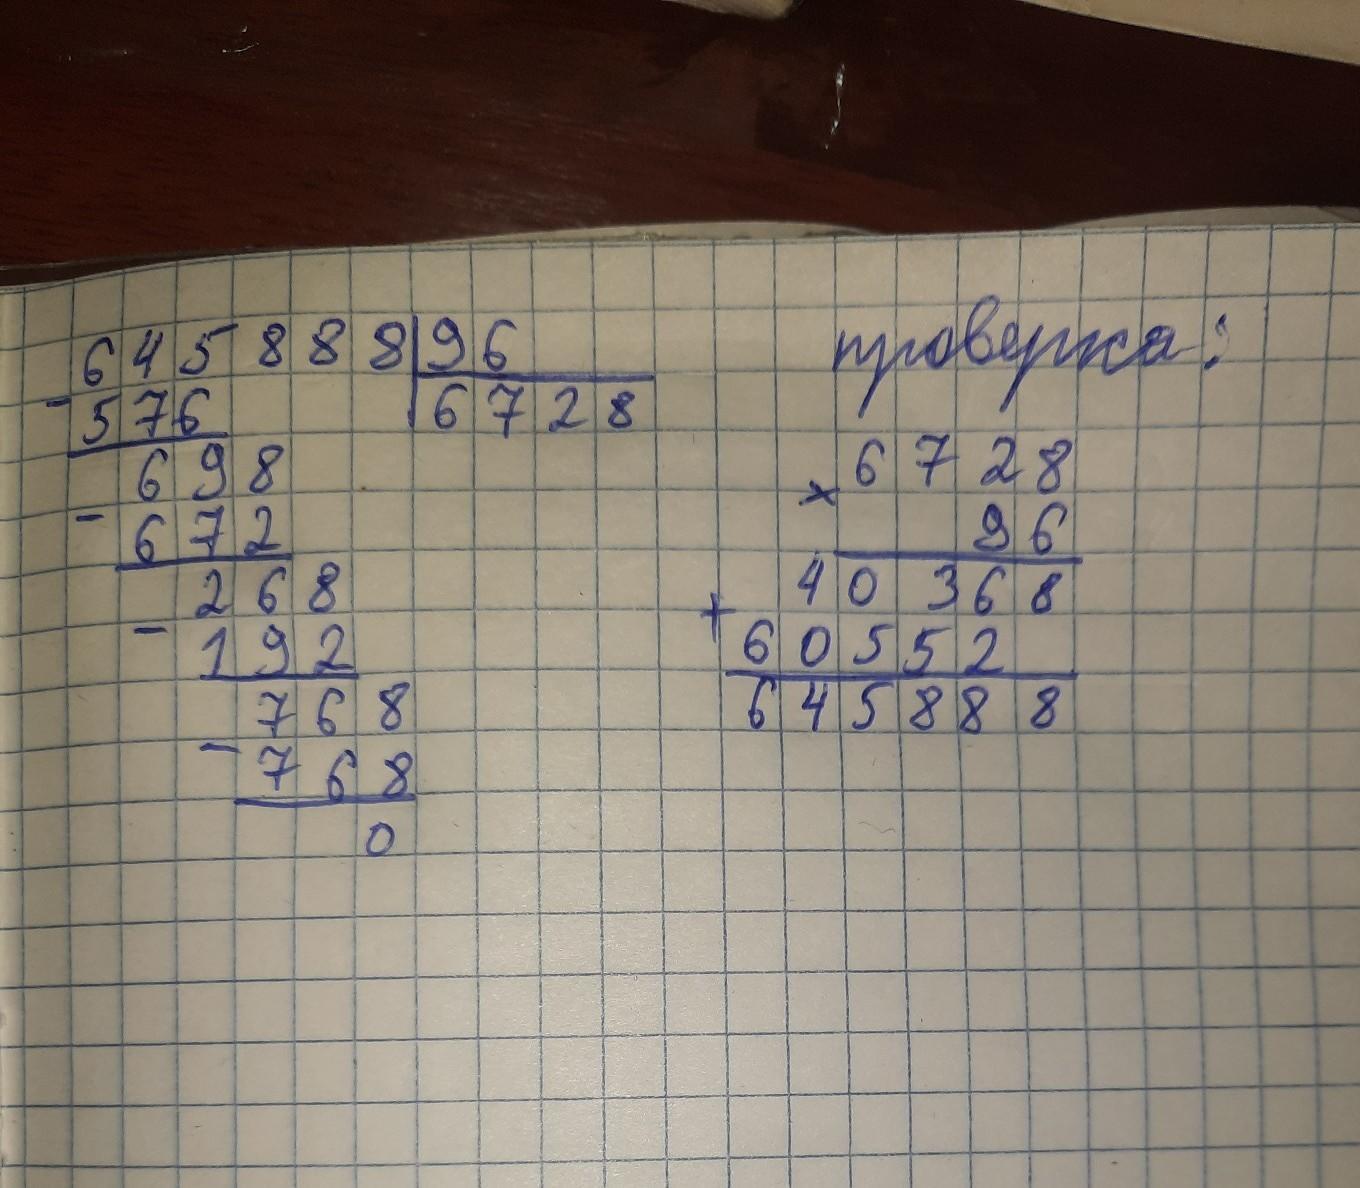 645888|96
-576 6728
698
-672
268
-192
768
-768
0
проверка:
6728
× 96
40368
+ 60552
645888